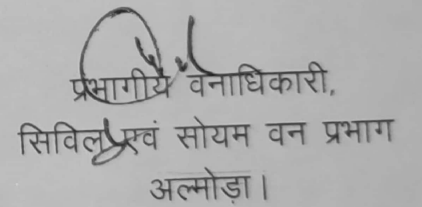 प्रभागीय वनाधिकारी,
सिविल एवं सोयम वन प्रभाग
अल्मोड़ा।